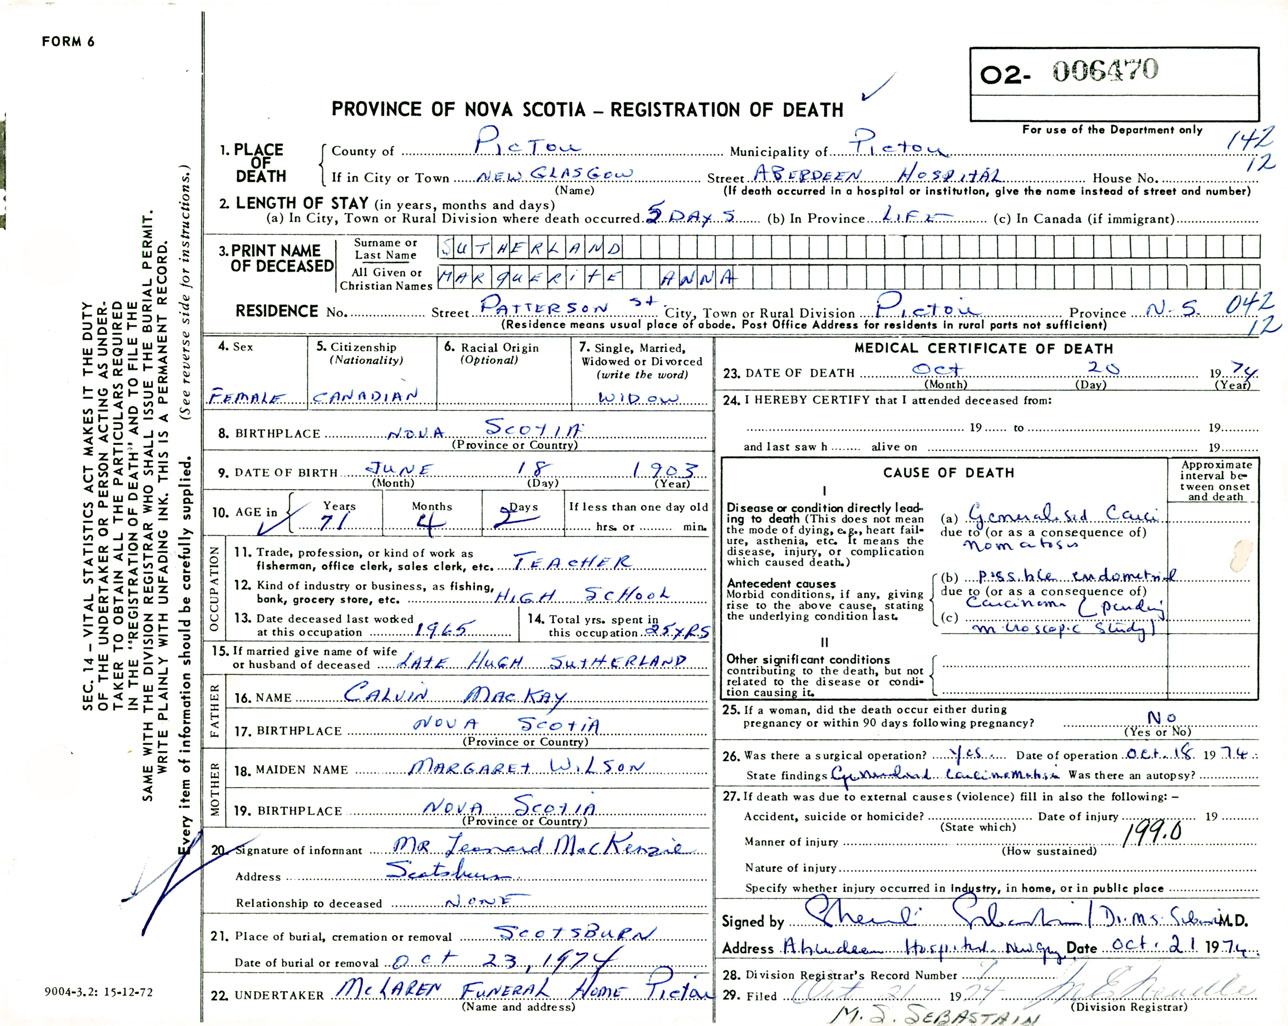 FORM 6
O2- 006470
PROVINCE OF NOVA SCOTIA – REGISTRATION OF DEATH
For use of the Department only
142
12
1. PLACE OF DEATH
County of PICTOU Municipality of PICTOU
If in City or Town NEW GLASGOW Street ABERDEEN HOSPITAL House No.
(Name) (If death occurred in a hospital or institution, give the name instead of street and number)
2. LENGTH OF STAY (in years, months and days)
(a) In City, Town or Rural Division where death occurred. 5 DAYS (b) In Province LIFE (c) In Canada (if immigrant)
3. PRINT NAME OF DECEASED
Surname or Last Name SUTHERLAND
All Given or Christian Names MARQUERITE ANNA
RESIDENCE No. Street PATTERSON St. City, Town or Rural Division PICTOU Province N.S. 042
(Residence means usual place of abode. Post Office Address for residents in rural parts not sufficient) 12
4. Sex
FEMALE
5. Citizenship
(Nationality)
CANADIAN
6. Racial Origin
(Optional)
7. Single, Married,
Widowed or Divorced
(write the word)
WIDOW
8. BIRTHPLACE NOVA SCOTIA
(Province or Country)
9. DATE OF BIRTH JUNE 18 1903
(Month) (Day) (Year)
10. AGE in Years Months Days If less than one day old
71 4 2 hrs. or min.
OCCUPATION
11. Trade, profession, or kind of work as
fisherman, office clerk, sales clerk, etc. TEACHER
12. Kind of industry or business, as fishing,
bank, grocery store, etc. HIGH SCHOOL
13. Date deceased last worked
at this occupation 1965
14. Total yrs. spent in
this occupation 25 YRS
15. If married give name of wife
or husband of deceased LATE HUGH SUTHERLAND
FATHER
16. NAME CALVIN MACKAY
17. BIRTHPLACE NOVA SCOTIA
(Province or Country)
MOTHER
18. MAIDEN NAME MARGARET WILSON
19. BIRTHPLACE NOVA SCOTIA
(Province or Country)
20. Signature of informant MR Leonard MacKenzie
Address Scotsburn
Relationship to deceased NONE
21. Place of burial, cremation or removal SCOTSBURN
Date of burial or removal OCT 23, 1974
22. UNDERTAKER McLAREN FUNERAL HOME Pictou
(Name and address)
MEDICAL CERTIFICATE OF DEATH
23. DATE OF DEATH OCT 20 1974
(Month) (Day) (Year)
24. I HEREBY CERTIFY that I attended deceased from:
19 to 19
and last saw h alive on 19
CAUSE OF DEATH
Approximate interval between onset and death
I
Disease or condition directly leading
to death (This does not mean
the mode of dying, e.g., heart failure,
asthenia, etc. It means the
disease, injury, or complication
which caused death.)
(a) Generalised Carci
due to (or as a consequence of)
nomatosis
Antecedent causes
Morbid conditions, if any, giving
rise to the above cause, stating
the underlying condition last.
(b) possible endometrial
due to (or as a consequence of)
Carcinoma (pending
(c) microscopic study)
II
Other significant conditions
contributing to the death, but not
related to the disease or condition
causing it.
25. If a woman, did the death occur either during
pregnancy or within 90 days following pregnancy? NO
(Yes or No)
26. Was there a surgical operation? Yes Date of operation Oct. 18 1974
State findings Generalised Carcinomatosis Was there an autopsy?
27. If death was due to external causes (violence) fill in also the following: –
Accident, suicide or homicide? Date of injury 19
(State which)
199.0
Manner of injury
(How sustained)
Nature of injury
Specify whether injury occurred in Industry, in home, or in public place
Signed by Dr. M.S. M.D.
Address Aberdeen Hospital Date Oct. 21 1974
28. Division Registrar's Record Number
29. Filed Oct 21 1974
(Division Registrar)
M. S. SEBASTAIN
SEC. 14 – VITAL STATISTICS ACT MAKES IT THE DUTY
OF THE UNDERTAKER OR PERSON ACTING AS UNDER-
TAKER TO OBTAIN ALL THE PARTICULARS REQUIRED
IN THE "REGISTRATION OF DEATH" AND TO FILE THE
SAME WITH THE DIVISION REGISTRAR WHO SHALL ISSUE THE BURIAL PERMIT.
WRITE PLAINLY WITH UNFADING INK. THIS IS A PERMANENT RECORD.
Every item of information should be carefully supplied. (See reverse side for instructions.)
9004-3.2: 15-12-72